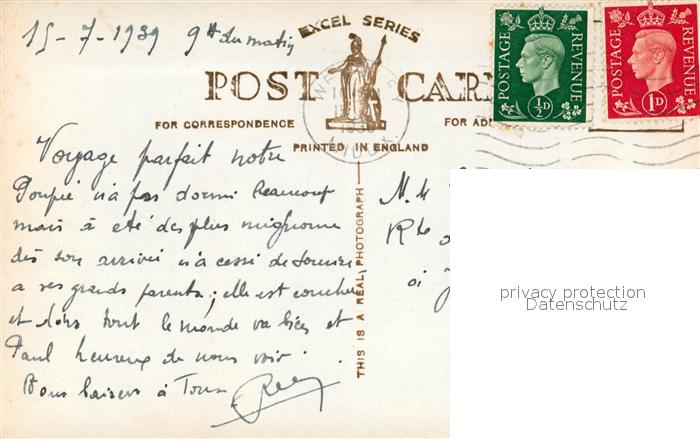 15-7-1939 9h du matin
EXCEL SERIES
POST CAR
FOR CORRESPONDENCE
FOR AD
PRINTED IN ENGLAND
POSTAGE REVENUE
½D
POSTAGE REVENUE
1D
Voyage parfait notre
Poupée n'a pas dormi beaucoup
mais a été des plus mignonne
dès son arrivée n'a cessé de sourire
a ses grands parents; elle est couchée
et dors tout le monde va bien et
Paul heureux de nous voir.
Bons baisers à Tous
THIS IS A REAL PHOTOGRAPH
privacy protection
Datenschutz